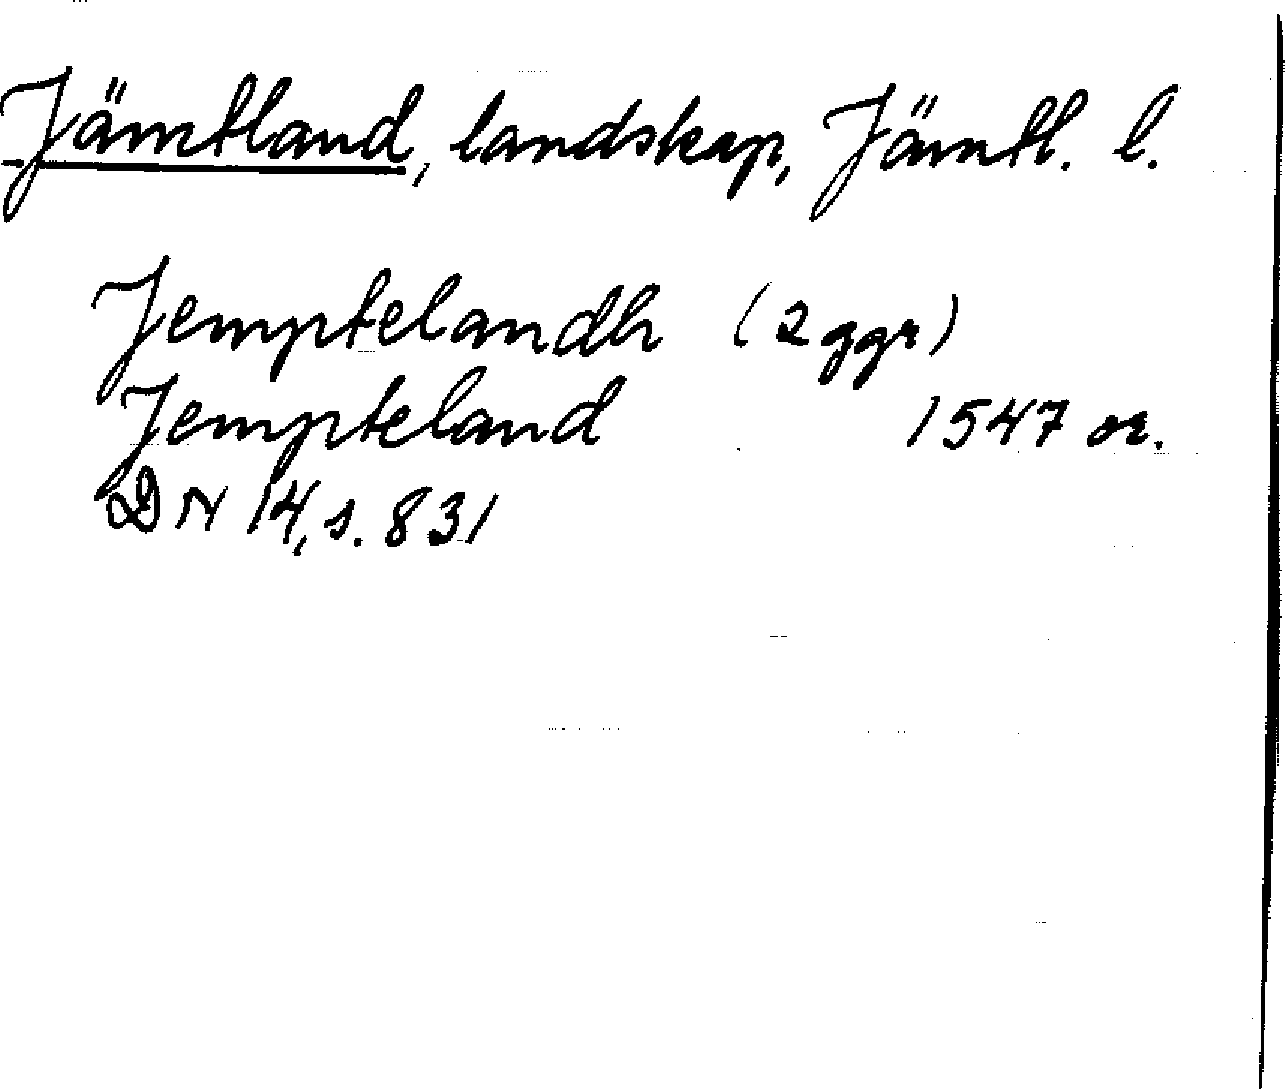 Jämtland, landskap, Jämtl. l.
Jemptelandh (2 ggr)
Jempteland 1547 or.
DN 14, s. 831